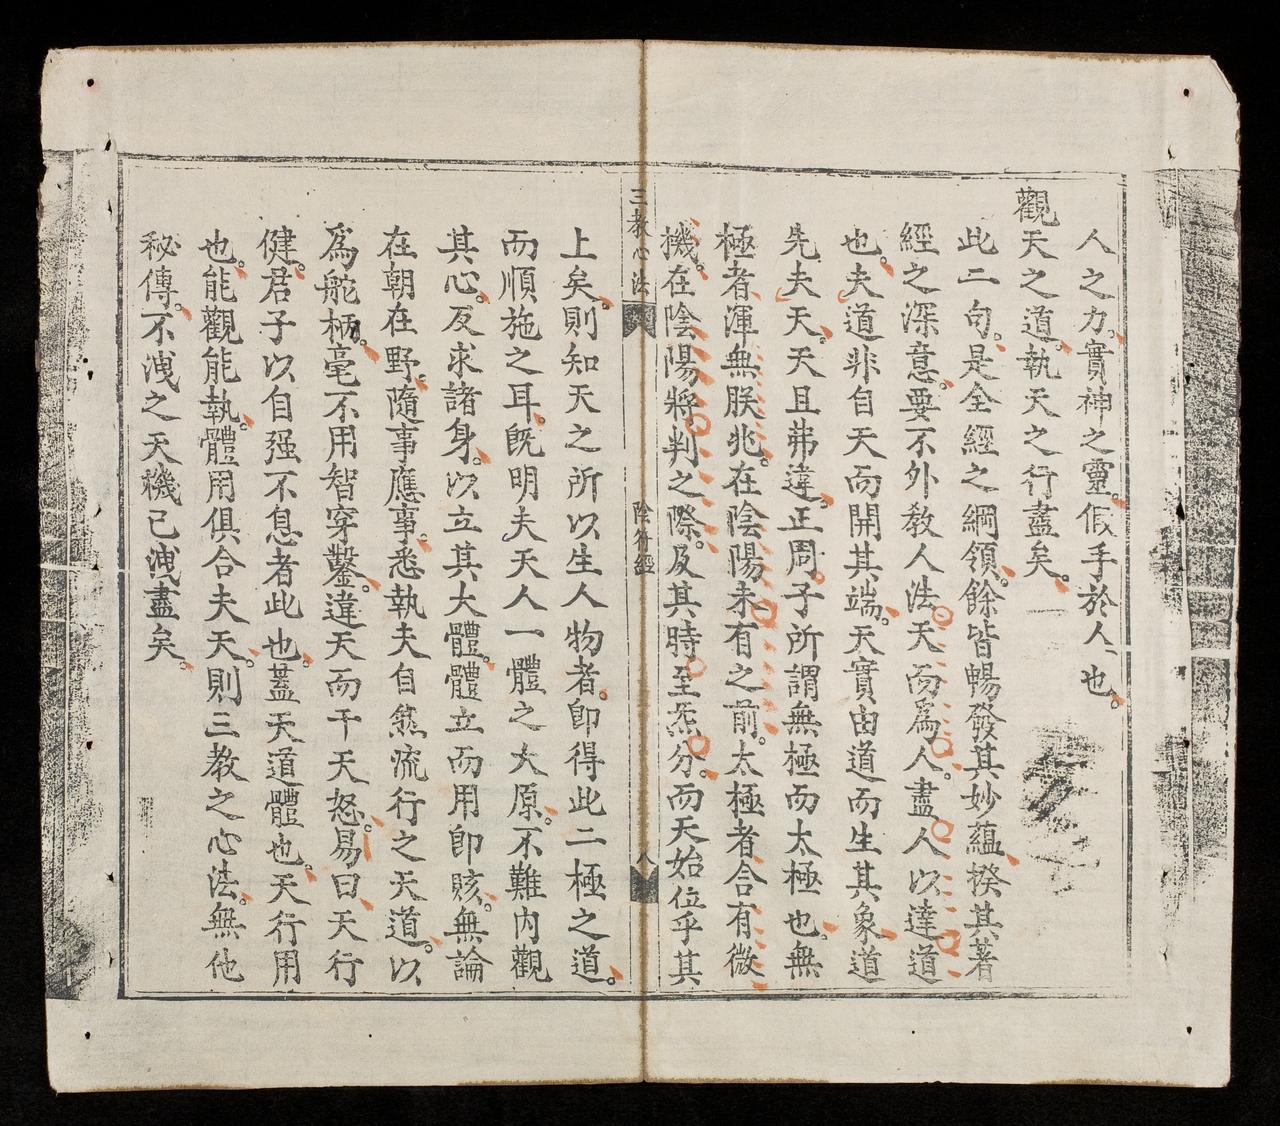 人之力。實神之靈。假手於人也。
觀天之道。執天之行盡矣。
此二句。是全經之綱領。餘皆暢發其妙蘊。揆其著
經之深意。要不外教人法天而爲人。盡人以達道
也。夫道非自天而開其端。天實由道而生其象。道
先夫天。天且弗違。正周子所謂無極而太極也。無
極者渾無朕兆。在陰陽未有之前。太極者含有微
機。在陰陽將判之際。及其時至炁分。而天始位乎其
三教心法
陰符經
八
上矣。則知天之所以生人物者。卽得此二極之道。
而順施之耳。旣明夫天人一體之大原。不難内觀
其心。反求諸身。以立其大體。體立而用卽賅。無論
在朝在野。隨事應事。悉執夫自然流行之天道。以
爲舵柄。毫不用智穿鑿。違天而干天怒。易曰。天行
健。君子以自强不息者此也。蓋天道體也。天行用
也。能觀能執。體用俱合夫天。則三教之心法。無他
秘傳。不洩之天機已洩盡矣。